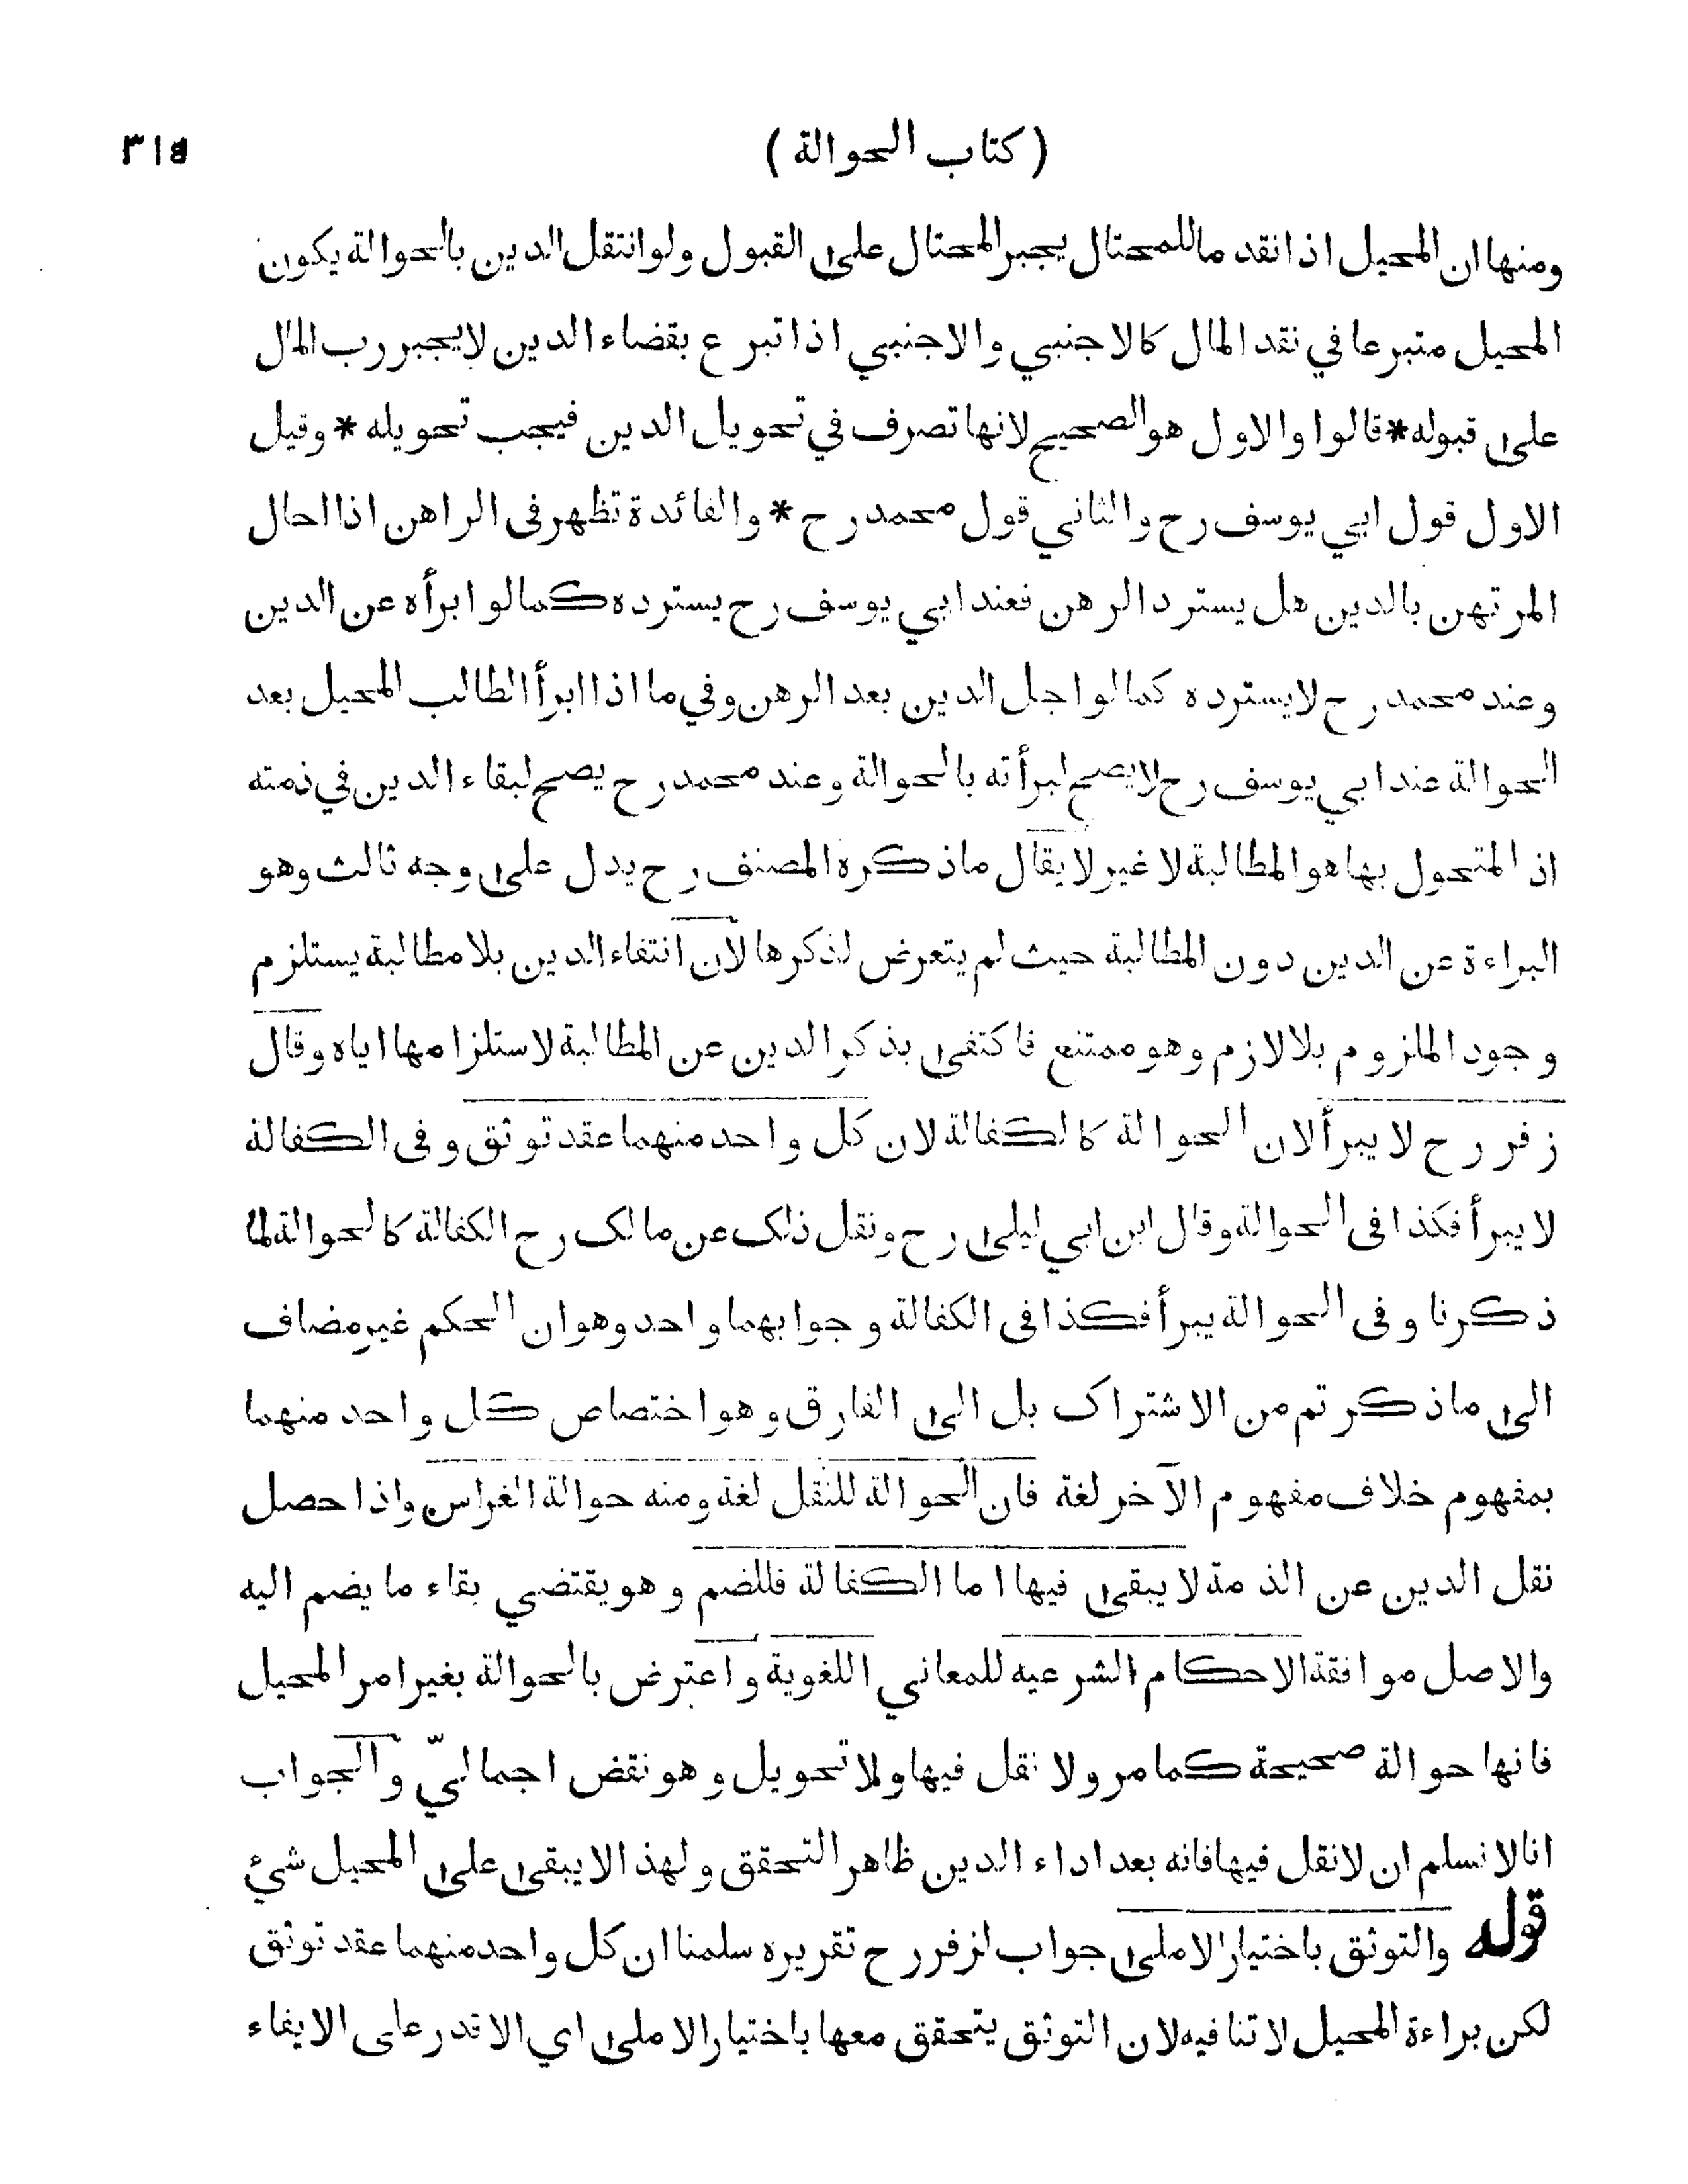 ( كتاب الحوالة ) ٣١٥
ومنها ان المحيل اذا نقد ما للمحتال يجبر المحتال على القبول ولو انتقل الدين بالحوالة يكون
المحيل متبرعا في نقد المال كالاجنبي والاجنبي اذا تبرع بقضاء الدين لا يجبر رب المال
على قبوله * قالوا والاول هو الصحيح لانها تصرف في تحويل الدين فيجب تحويله * وقيل
الاول قول ابي يوسف رح والثاني قول محمد رح * والفائدة تظهر في الراهن اذا احال
المرتهن بالدين هل يسترد الرهن فعند ابي يوسف رح يسترده كما لو ابرأه عن الدين
وعند محمد رح لا يسترده كما لو اجل الدين بعد الرهن وفي ما اذا ابرأ الطالب المحيل بعد
الحوالة عند ابي يوسف رح لا يصح لبرأته بالحوالة وعند محمد رح يصح لبقاء الدين في ذمته
اذ المتحول بها هو المطالبة لا غير لا يقال ما ذكره المصنف رح يدل على وجه ثالث وهو
البراءة عن الدين دون المطالبة حيث لم يتعرض لذكرها لان انتفاء الدين بلا مطالبة يستلزم
وجود الملزوم بلا لازم وهو ممتنع فاكتفى بذكر الدين عن المطالبة لاستلزامها اياه وقال
زفر رح لا يبرأ لان الحوالة كالكفالة لان كل واحد منهما عقد توثق وفى الكفالة
لا يبرأ فكذا فى الحوالة وقال ابن ابي ليلى رح ونقل ذلك عن مالك رح الكفالة كالحوالة لما
ذكرنا وفى الحوالة يبرأ فكذا فى الكفالة وجوابهما واحد وهو ان الحكم غير مضاف
الى ما ذكرتم من الاشتراك بل الى الفارق وهو اختصاص كل واحد منهما
بمفهوم خلاف مفهوم الآخر لغة فان الحوالة للنقل لغة ومنه حوالة الغراس واذا حصل
نقل الدين عن الذمة لا يبقى فيها اما الكفالة فللضم وهو يقتضي بقاء ما يضم اليه
والاصل موافقة الاحكام الشرعيه للمعاني اللغوية واعترض بالحوالة بغير امر المحيل
فانها حوالة صحيحة كما مر ولا نقل فيها ولا تحويل وهو نقض اجماليّ والجواب
انا لا نسلم ان لا نقل فيها فانه بعد اداء الدين ظاهر التحقق ولهذا لا يبقى على المحيل شئ
قوله والتوثق باختيار الاملى جواب لزفر رح تقريره سلمنا ان كل واحد منهما عقد توثق
لكن براءة المحيل لا تنافيه لان التوثق يتحقق معها باختيار الاملى اي الاقدر على الايفاء